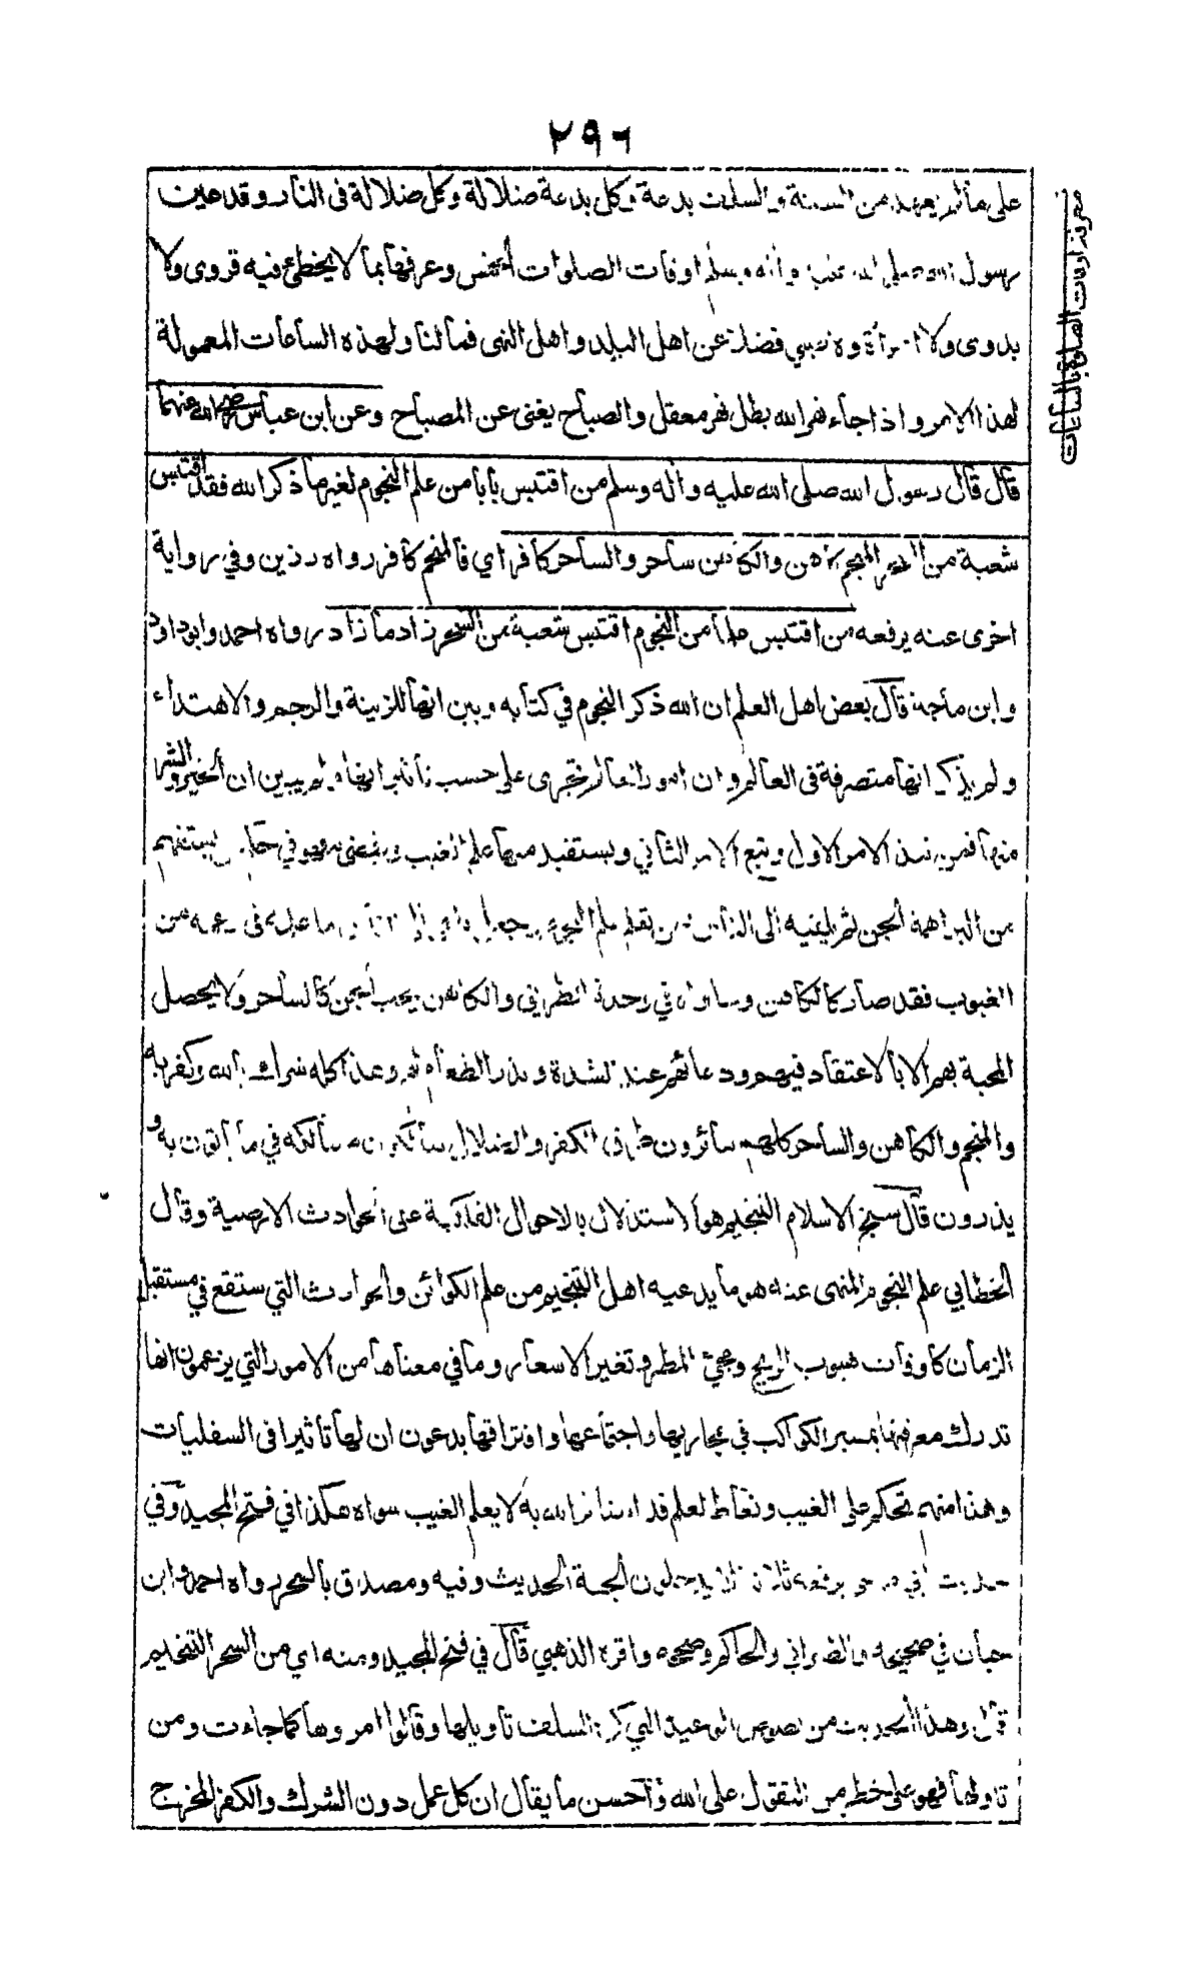 ٢٩٦
على ما لم يعهد من السنة والسلف بدعة وكل بدعة ضلالة وكل ضلالة فى النار وقد عين
رسول الله صلى الله عليه وآله وسلم اوقات الصلوات الخمس وعرفها بما لا يخطئ فيه قروى ولا
بدوى ولا امرأة وصبي فضلا عن اهل البلد واهل النهى فما لنا ولهذه الساعات المعمولة
لهذا الامر واذا جاء نهر الله بطل نهر معقل والصباح يغنى عن المصباح وعن ابن عباس رضي الله عنهما
قال قال رسول الله صلى الله عليه وآله وسلم من اقتبس بابا من علم النجوم لغير ما ذكر الله فقد اقتبس
شعبة من السحر المنجم كاهن والكاهن ساحر والساحر كافر اي فالمنجم كافر رواه رزين وفي رواية
اخرى عنه يرفعه من اقتبس علما من النجوم اقتبس شعبة من السحر زاد ما زاد رواه احمد وابو داود
وابن ماجة قال بعض اهل العلم ان الله ذكر النجوم في كتابه وبين انها للزينة والرجم والاهتداء
ولم يذكر انها متصرفة فى العالم وان امور العالم تجرى على حسب تأثيراتها ولم يبين ان الخير والشر
منها فمن نبذ الامر الاول وتبع الامر الثاني ويستفيد منها علم الغيب فهو في يستفهم
من البراهمة الجن ثم يلقيه الى الناس من تعلم علم النجوم فى زعمه من
الغيوب فقد صار كالكاهن وساواه في وحدة الطريق والكاهن يحب الجن كالساحر ولا يحصل
المحبة بهم الا بالاعتقاد فيهم ودعائهم عند الشدة ونذر الطعام لهم وهذا كله شرك بالله وكفر به
والمنجم والكاهن والساحر كلهم سائرون طرق الكفر والضلال سالكون مسالكه في ما يأتون به و
يذرون قال شيخ الاسلام التنجيم هو الاستدلال بالاحوال الفلكية على الحوادث الارضية وقال
الخطابي علم النجوم المنهى عنه هو ما يدعيه اهل التنجيم من علم الكوائن والحوادث التي ستقع في مستقبل
الزمان كاوقات هبوب الريح ومجئ المطر وتغير الاسعار وما في معناها من الامور التي يزعمون انها
تدرك معرفتها بمسير الكواكب في مجاريها واجتماعها وافتراقها يدعون ان لها تأثيرا فى السفليات
وهذا منهم تحكم على الغيب وتعاط لعلم قد استأثر الله به لا يعلم الغيب سواه هكذا في فتح المجيد وفي
حديث ابي موسى يرفعه ثلاثة لا يدخلون الجنة الحديث وفيه ومصدق بالسحر رواه احمد وابن
حبان في صحيحه والطبراني والحاكم وصححه واقره الذهبي قال في فتح المجيد ومنه اي من السحر التنجيم
قال وهذا الحديث من نصوص الوعيد التي كره السلف تاويلها وقالوا امروها كما جاءت ومن
تاولها فهو على خطر من التقول على الله واحسن ما يقال ان كل عمل دون الشرك والكفر المخرج
معرفة اوقات الصلوة بالساعات